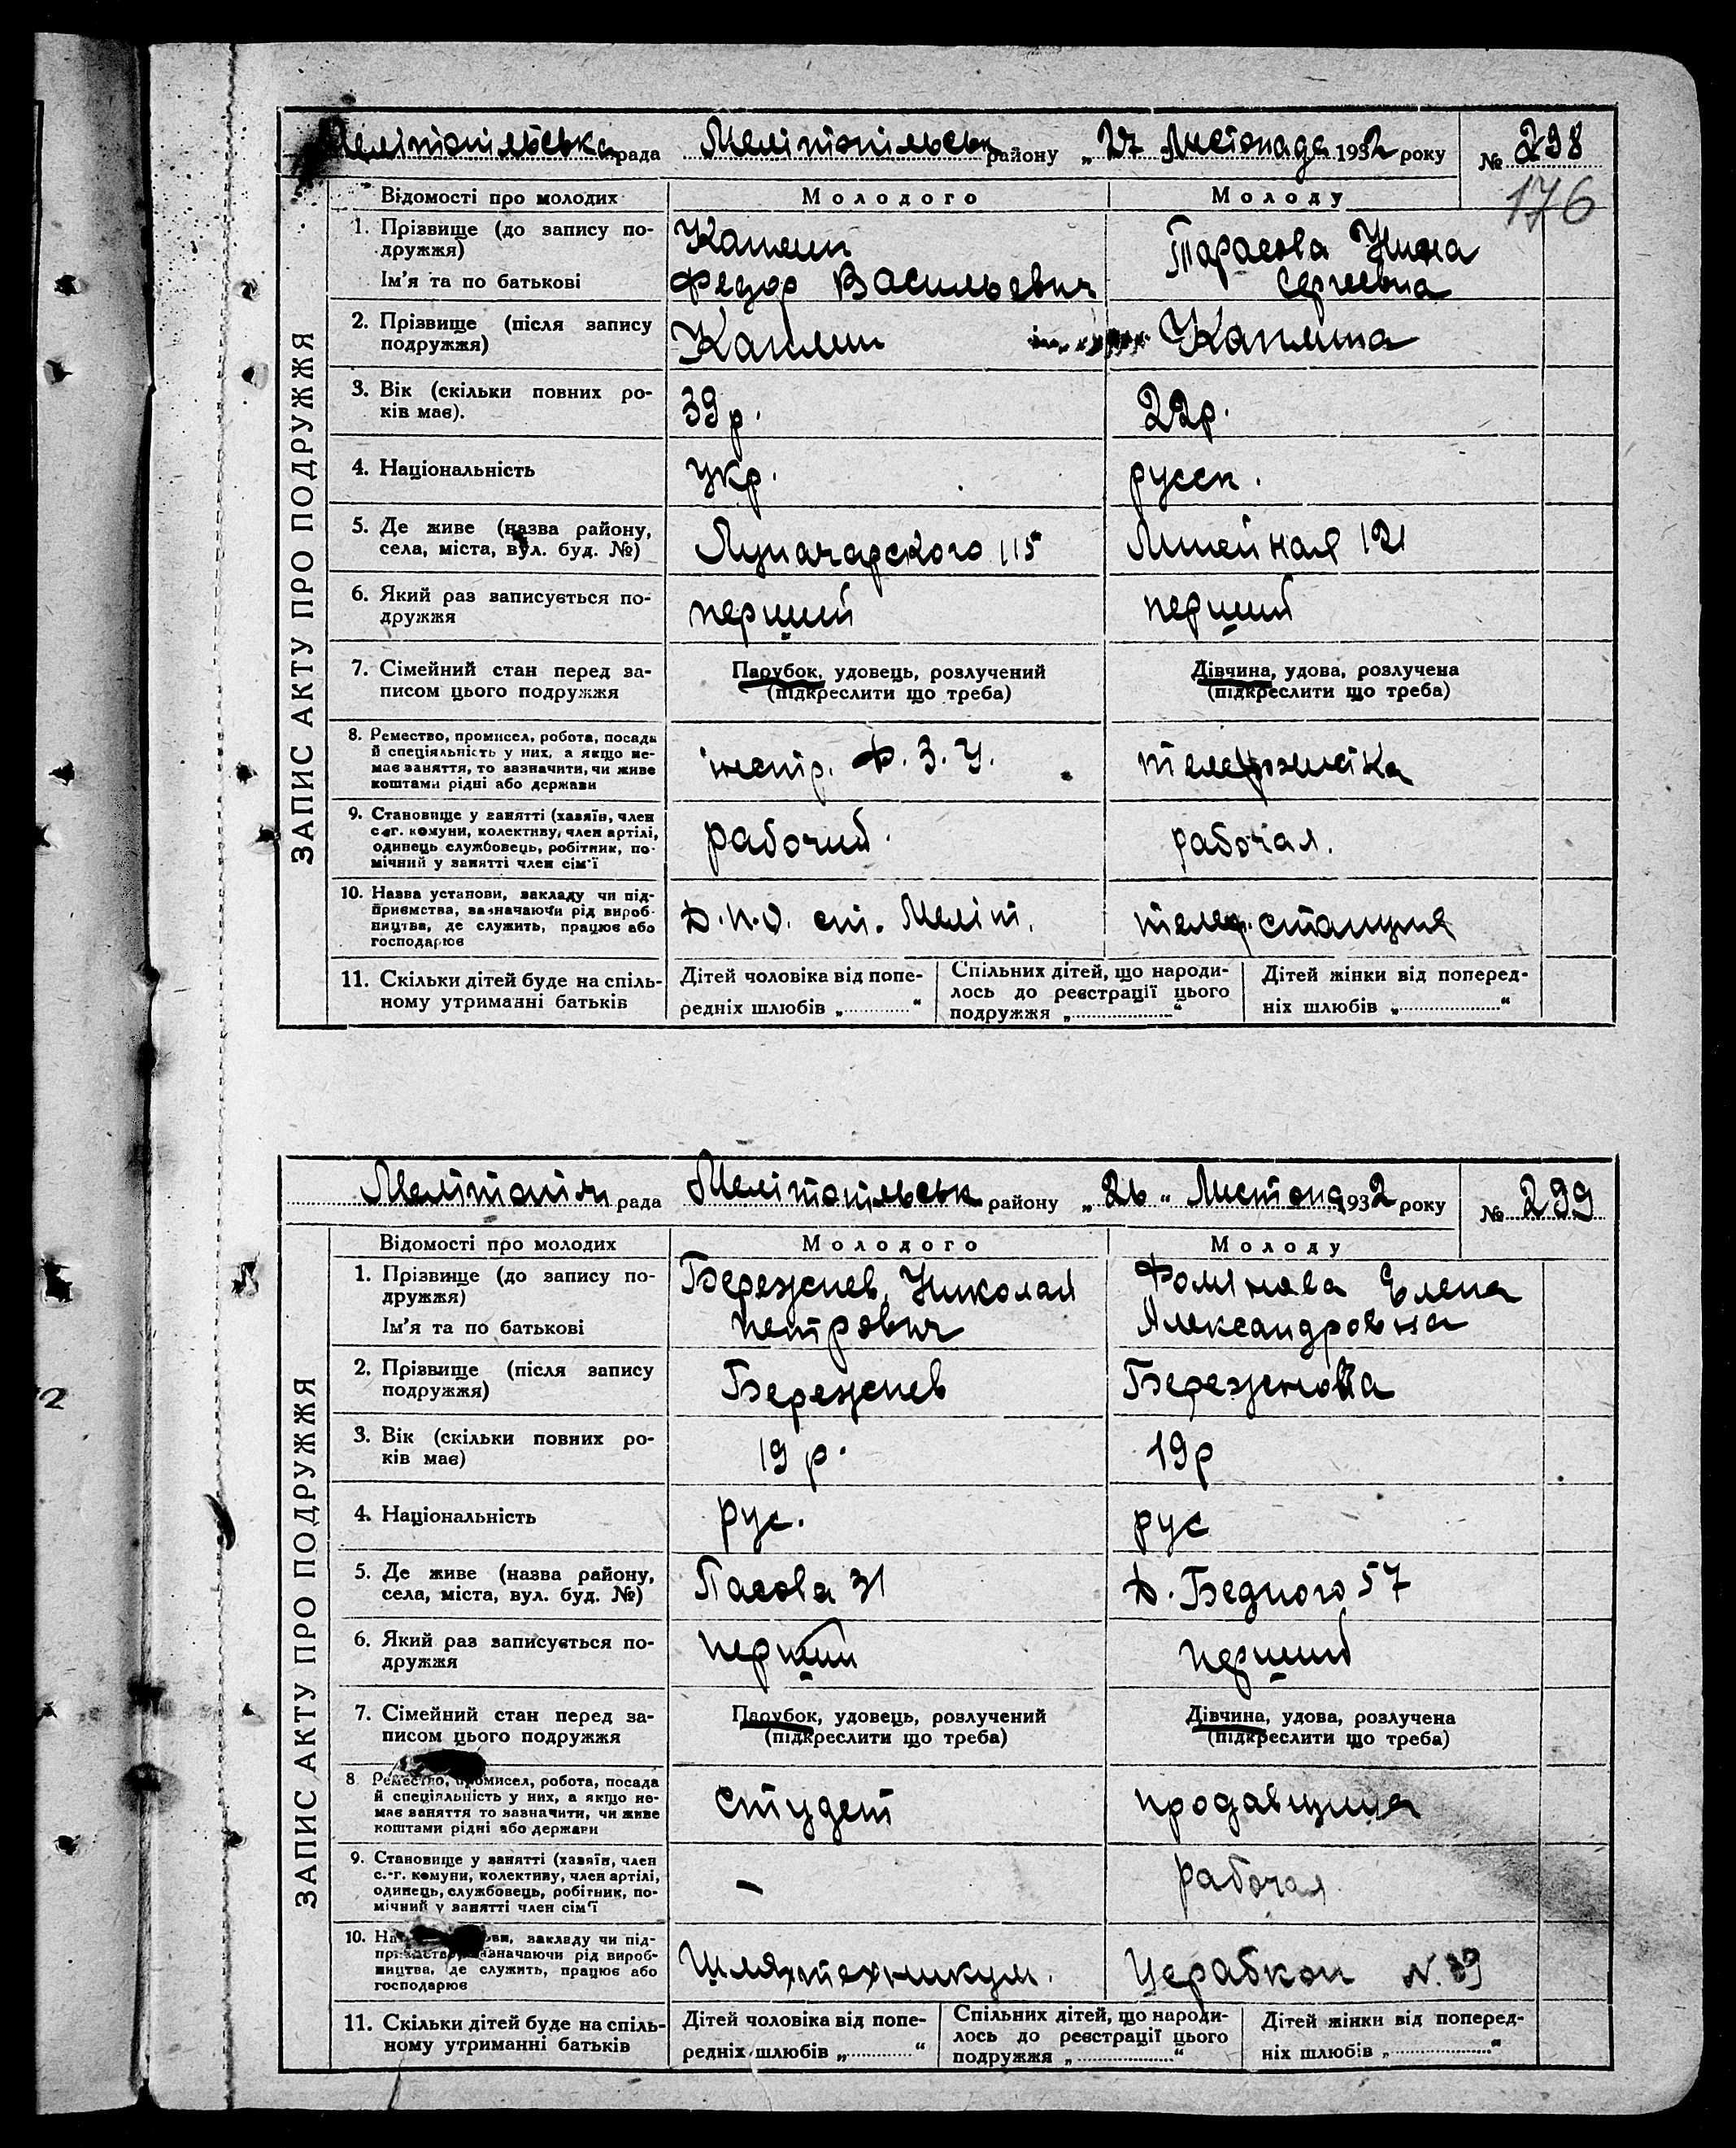 Мелітопільська рада Мелітопільськ району „27 Листопада 1932 року № 298
176
ЗАПИС АКТУ ПРО ПОДРУЖЖЯ
Відомості про молодих Молодого Молоду
1. Прізвище (до запису по-
дружжя)
Ім'я та по батькові
Каплин
Федор Васильевич
Тарасова Нина
Сергеевна
2. Прізвище (після запису
подружжя)
Каплин
Каплина
3. Вік (скільки повних ро-
ків має).
39 р.
22 р.
4. Національність
укр.
русск.
5. Де живе (назва району,
села, міста, вул. буд. №)
Луначарского 115
Линейная 121
6. Який раз записується по-
дружжя
перший
перший
7. Сімейний стан перед за-
писом цього подружжя
Парубок, удовець, розлучений
(підкреслити що треба)
Дівчина, удова, розлучена
(підкреслити що треба)
8. Ремество, промисел, робота, посада
й спеціяльність у них, а якщо не-
має заняття, то зазначити, чи живе
коштами рідні або держави
інстр. Ф.З.У.
телефонистка
9. Становище у занятті (хазяїн, член
с.-г. комуни, колективу, член артілі,
одинець службовець, робітник, по-
мічний у занятті член сім'ї
рабочий.
рабочая.
10. Назва установи, закладу чи під-
приємства, зазначаючи рід вироб-
ництва, де служить, працює або
господарює
ст. Меліт.
телеф. станция
11. Скільки дітей буде на спіль-
ному утриманні батьків
Дітей чоловіка від попе-
редніх шлюбів „............“
Спільних дітей, що народи-
лось до реєстрації цього
подружжя „....................“
Дітей жінки від поперед-
ніх шлюбів „....................“
Мелітопіль рада Мелітопільськ району „26“ Листопад 1932 року № 299
ЗАПИС АКТУ ПРО ПОДРУЖЖЯ
Відомості про молодих Молодого Молоду
1. Прізвище (до запису по-
дружжя)
Ім'я та по батькові
Бережнев Николай
Петрович
Фомінова Елена
Александровна
2. Прізвище (після запису
подружжя)
Бережнев
Бережнова
3. Вік (скільки повних ро-
ків має)
19 р.
19 р
4. Національність
рус.
рус
5. Де живе (назва району,
села, міста, вул. буд. №)
31
Д. Бедного 57
6. Який раз записується по-
дружжя
перший
перший
7. Сімейний стан перед за-
писом цього подружжя
Парубок, удовець, розлучений
(підкреслити що треба)
Дівчина, удова, розлучена
(підкреслити що треба)
8 Ремество, промисел, робота, посада
й спеціяльність у них, а якщо не-
має заняття то зазначити, чи живе
коштами рідні або держави
студент
продавщица
9. Становище у занятті (хазяїн, член
с.-г. комуни, колективу, член артілі,
одинець, службовець, робітник, по-
мічний у занятті член сім'ї
–
рабочая
10. закладу чи під-
зазначаючи рід вироб-
ництва, де служить, працює або
господарює
Шляхтехникум.
Церабкоп N. 39
11. Скільки дітей буде на спіль-
ному утриманні батьків
Дітей чоловіка від попе-
редніх шлюбів „............“
Спільних дітей, що народи-
лось до реєстрації цього
подружжя „....................“
Дітей жінки від поперед-
ніх шлюбів „....................“